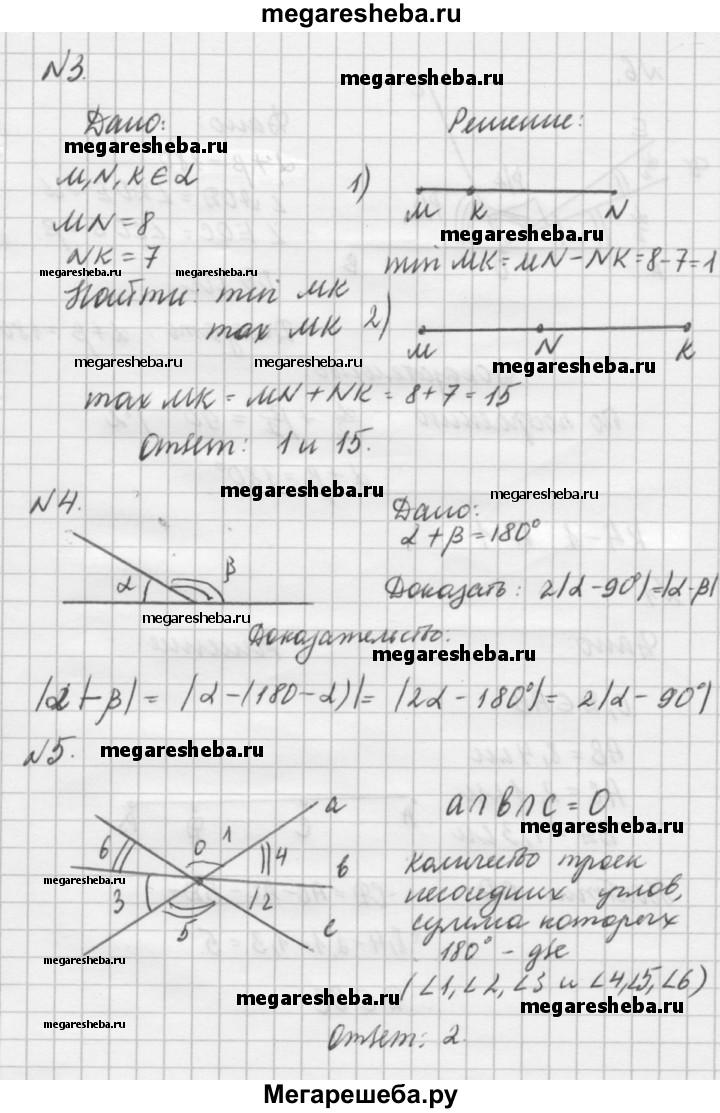 megaresheba.ru
N3.
megaresheba.ru
Дано:
Решение:
megaresheba.ru
M, N, K ∈ α
1)
M K N
MN = 8
megaresheba.ru
NK = 7
megaresheba.ru megaresheba.ru
min MK = MN − NK = 8 − 7 = 1
Найти: min MK
max MK
2)
M N K
megaresheba.ru megaresheba.ru
megaresheba.ru
max MK = MN + NK = 8 + 7 = 15
Ответ: 1 и 15.
megaresheba.ru
megaresheba.ru
N4.
Дано:
α + β = 180°
α β
Доказать: 2|α − 90°| = |α − β|
megaresheba.ru
Доказательство:
megaresheba.ru
|α − β| = |α − (180 − α)| = |2α − 180°| = 2|α − 90°|
N5.
megaresheba.ru
a
a ∩ b ∩ c = O
megaresheba.ru
6 O 1 4
b
3 2
5
c
megaresheba.ru
Количество троек
несоседних углов,
сумма которых
180° - две
(∠1, ∠2, ∠3 и ∠4, ∠5, ∠6)
megaresheba.ru
megaresheba.ru
megaresheba.ru
megaresheba.ru
Ответ: 2.
Мегарешеба.ру